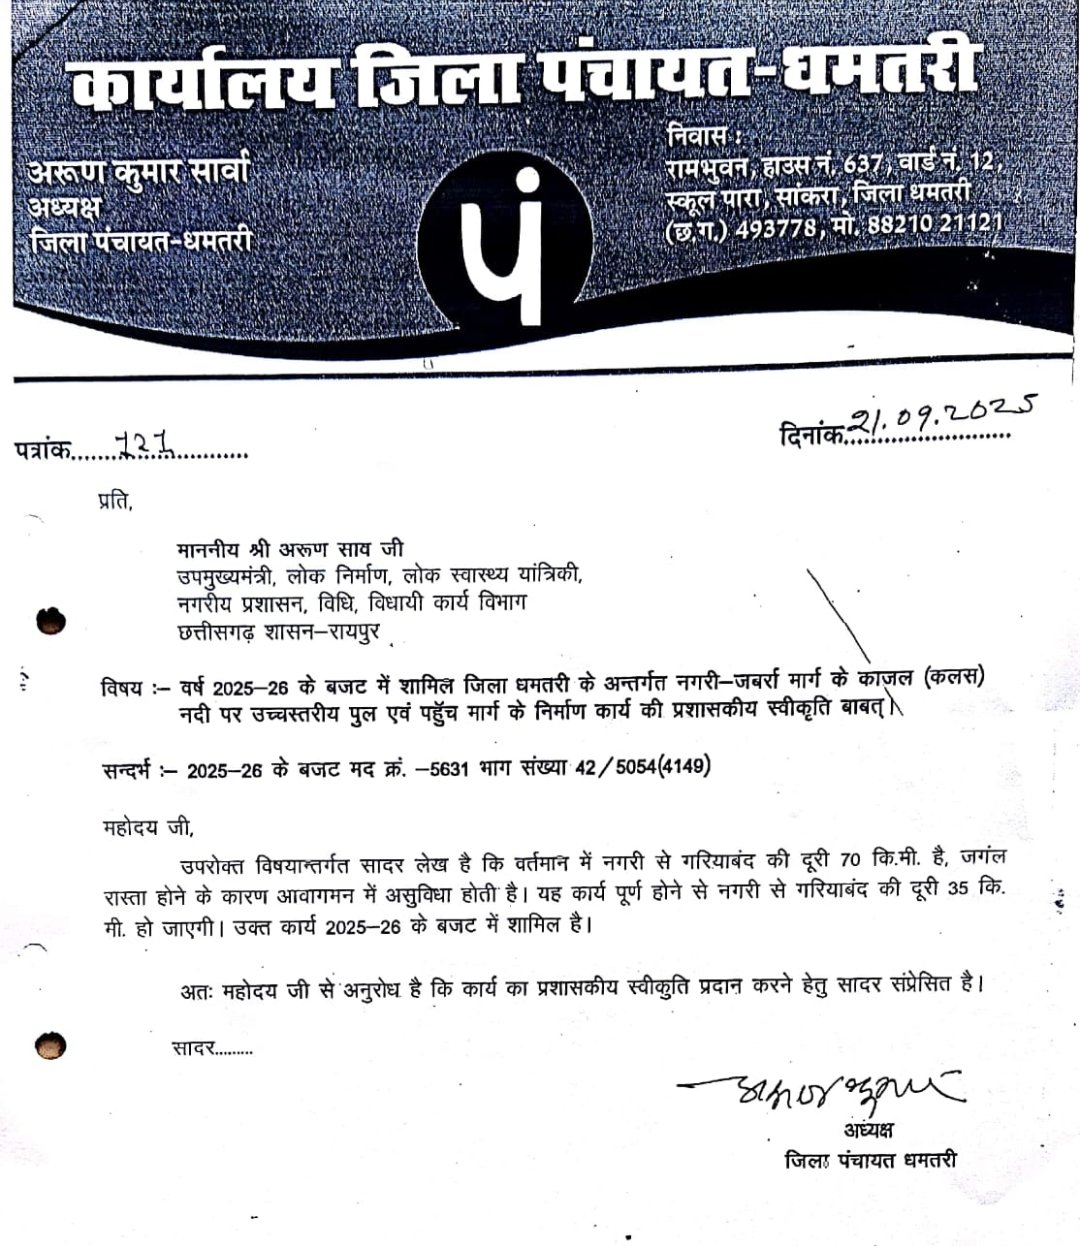 कार्यालय जिला पंचायत-धमतरी
अरूण कुमार सार्वा
अध्यक्ष
जिला पंचायत-धमतरी
पं
निवास :
रामभुवन, हाउस नं. 637, वार्ड नं. 12,
स्कूल पारा, सांकरा, जिला धमतरी
(छ.ग.) 493778, मो. 88210 21121
पत्रांक.......727............
दिनांक 21.09.2025
प्रति,
माननीय श्री अरूण साव जी
उपमुख्यमंत्री, लोक निर्माण, लोक स्वास्थ्य यांत्रिकी,
नगरीय प्रशासन, विधि, विधायी कार्य विभाग
छत्तीसगढ़ शासन–रायपुर
विषय :– वर्ष 2025–26 के बजट में शामिल जिला धमतरी के अन्तर्गत नगरी–जबर्रा मार्ग के काजल (कलस)
नदी पर उच्चस्तरीय पुल एवं पहुॅंच मार्ग के निर्माण कार्य की प्रशासकीय स्वीकृति बाबत्।
सन्दर्भ :– 2025–26 के बजट मद क्रं. –5631 भाग संख्या 42/5054(4149)
महोदय जी,
उपरोक्त विषयान्तर्गत सादर लेख है कि वर्तमान में नगरी से गरियाबंद की दूरी 70 कि.मी. है, जगंल
रास्ता होने के कारण आवागमन में असुविधा होती है। यह कार्य पूर्ण होने से नगरी से गरियाबंद की दूरी 35 कि.
मी. हो जाएगी। उक्त कार्य 2025–26 के बजट में शामिल है।
अतः महोदय जी से अनुरोध है कि कार्य का प्रशासकीय स्वीकुति प्रदान करने हेतु सादर संप्रेसित है।
सादर.........
अध्यक्ष
जिला पंचायत धमतरी